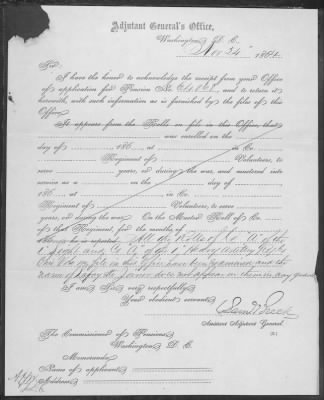 Adjutant General's Office,
Washington, D. C.
Nov 24" 1864.
Sir:
I have the honor to acknowledge the receipt from your Office
of application for Pension No. and to return it
herewith, with such information as is furnished by the files of this
Office.
It appears from the Rolls on file in this Office, that
was enrolled on the
day of 186 , at in Co.
Regiment of Volunteers, to
serve years, or during the war, and mustered into
service as a on the day of
186 , at in Co.
Regiment of Volunteers, to
serve years, or during the war. On the Muster Roll of Co.
of that Regiment, for the months of
he is reported All the Rolls of Co. of the
and Co. of Heavy Artillery
on file in this Office have been examined and the
name of do not appear on them in any grade
I am, Sir, very respectfully,
Your obedient servant,
Saml Breck
Assistant Adjutant General.
The Commissioner of Pensions,
Washington, D. C.
Memoranda:
Name of applicant
Address